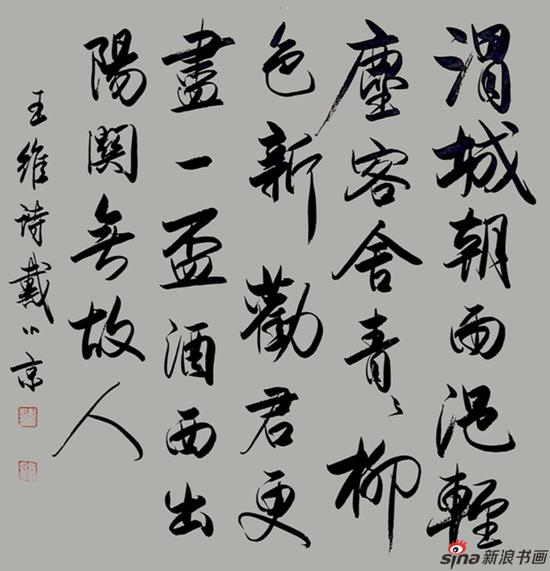 渭城朝雨浥輕
塵客舍青々柳
色新勸君更
盡一盃酒西出
陽關無故人
王維詩戴小京
sina新浪书画